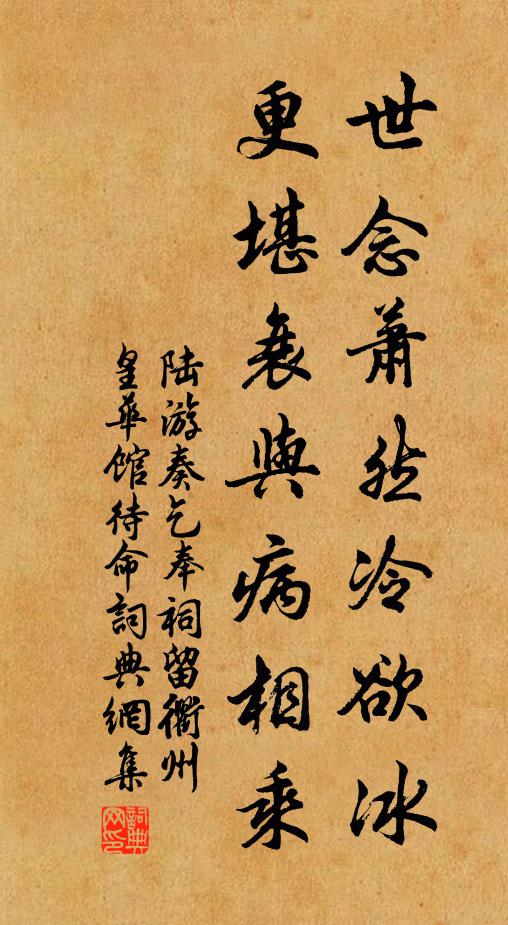 世念蕭然冷欲冰
更堪衰與病相乘
陆游奏乞奉祠留衢州
皇華馆待命詞典網集
詞典
网印